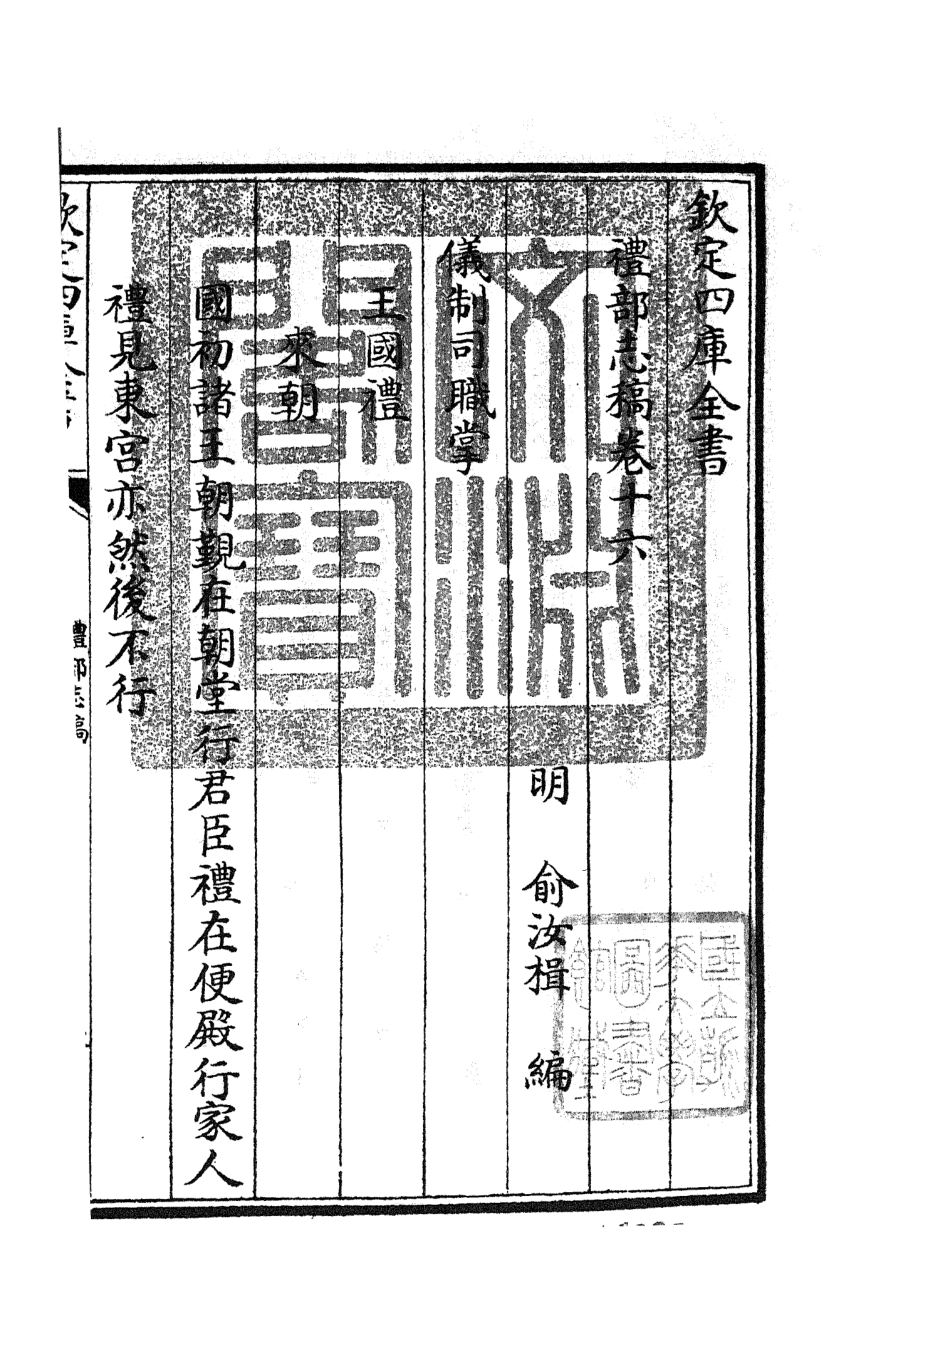 欽定四庫全書
禮部志稿卷十六
明 俞汝楫 編
儀制司職掌
王國禮
來朝
國初諸王朝覲在朝堂行君臣禮在便殿行家人
禮見東宮亦然後不行
禮部志稿
文淵閣寶